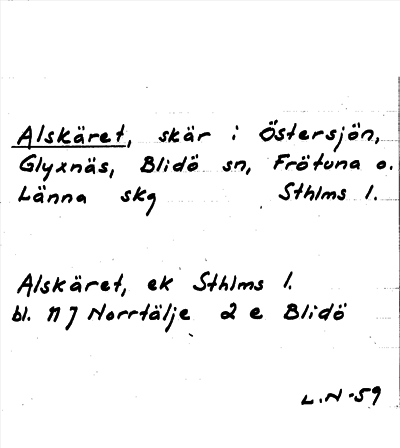 Alskäret, skär i Östersjön,
Glyxnäs, Blidö sn, Frötuna o.
Länna skg Sthlms l.
Alskäret, ek Sthlms l.
bl. 11 J Norrtälje 2 e Blidö
L.N-59